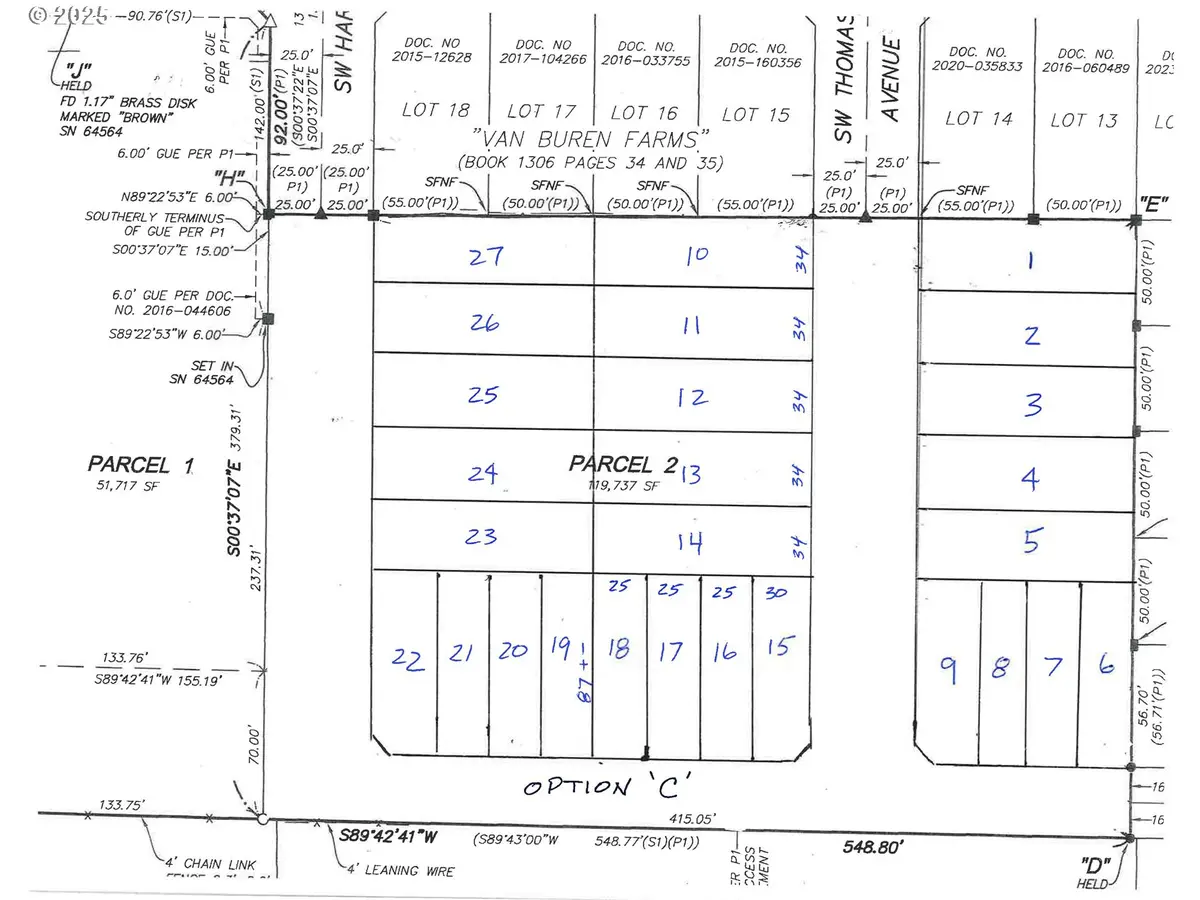 © 2025
90.76'(S1)
"J"
HELD
FD 1.17" BRASS DISK
MARKED "BROWN"
SN 64564
6.00' GUE
PER P1
142.00'(S1)
92.00'(P1)
(S00°37'22"E
S00°37'07"E
13
1.
25.0'
SW HAR
25.0'
DOC. NO
2015-12628
DOC. NO
2017-104266
DOC. NO.
2016-033755
DOC. NO.
2015-160356
SW THOMAS
AVENUE
DOC. NO.
2020-035833
DOC. NO.
2016-060489
2023
LOT 18
LOT 17
LOT 16
LOT 15
LOT 14
LOT 13
"VAN BUREN FARMS"
(BOOK 1306 PAGES 34 AND 35)
6.00' GUE PER P1
"H"
N89°22'53"E 6.00'
SOUTHERLY TERMINUS
OF GUE PER P1
S00°37'07"E 15.00'
(25.00'
P1)
25.00'
(25.00'
P1)
25.00'
SFNF
SFNF
SFNF
(55.00'(P1))
(50.00'(P1))
(50.00'(P1))
(55.00'(P1))
25.0'
(P1)
25.00'
25.0'
(P1)
25.00'
SFNF
(55.00'(P1))
(50.00'(P1))
"E"
27
10
34
1
50.00'(P1)
6.0' GUE PER DOC.
NO. 2016-044606
S89°22'53"W 6.00'
SET IN
SN 64564
26
11
34
2
50.00'(P1)
25
12
34
3
50.00'(P1)
PARCEL 1
51,717 SF
S00°37'07"E 379.31'
237.31'
24
PARCEL 2
119,737 SF
13
34
4
50.00'(P1)
23
14
34
5
25
25
25
30
22
21
20
19
87 +-
18
17
16
15
9
8
7
6
56.70'
(56.71'(P1))
133.76'
S89°42'41"W 155.19'
70.00'
OPTION 'C'
16
16
133.75'
415.05'
S89°42'41"W
(S89°43'00"W
548.77'(S1)(P1))
548.80'
4' CHAIN LINK
4' LEANING WIRE
"D"
HELD